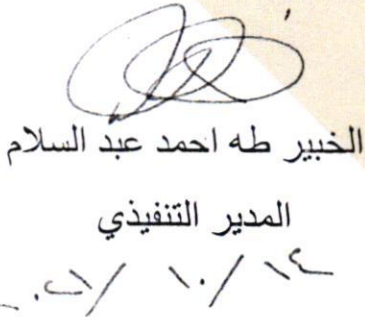 الخبير طه احمد عبد السلام
المدير التنفيذي
١٤ / ١٠ /